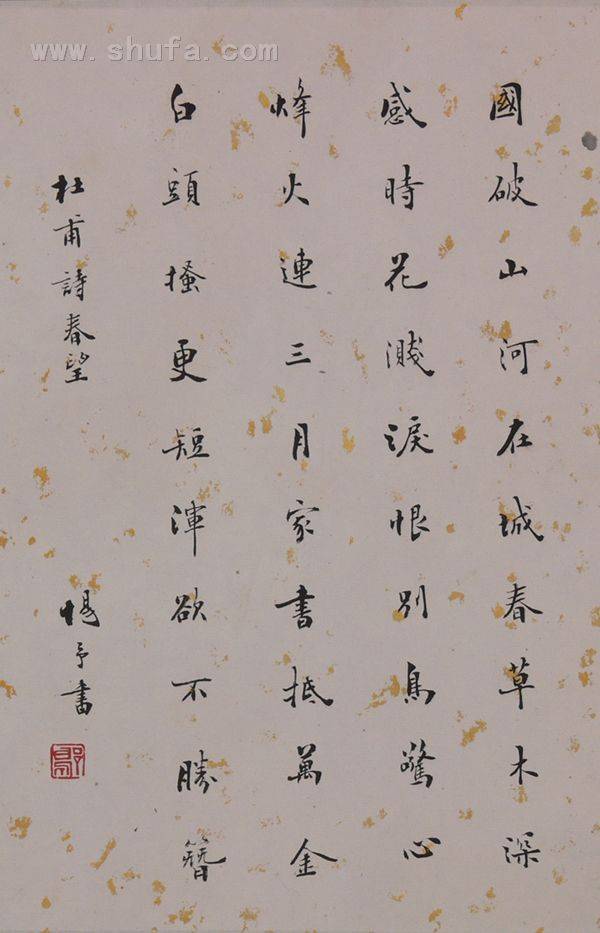 www.shufa.com
國破山河在城春草木深
感時花濺淚恨別鳥驚心
烽火連三月家書抵萬金
白頭搔更短渾欲不勝簪
杜甫詩春望
惕予書